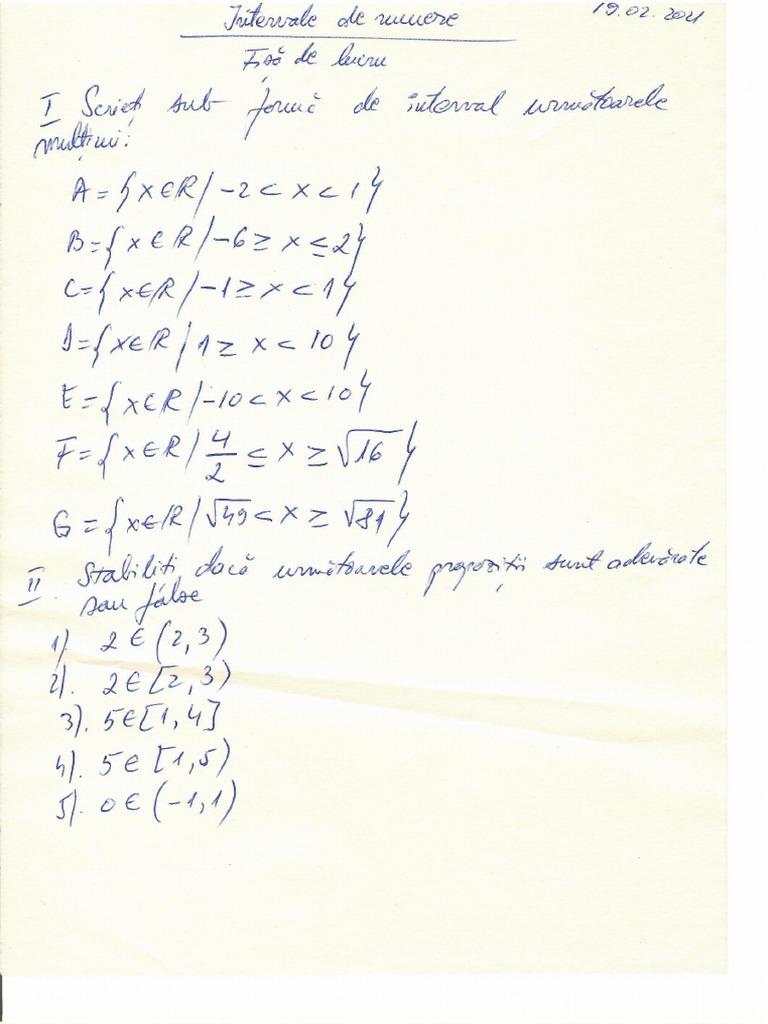 Intervale de numere 19.02.2021
Fișă de lucru
I Scrieți sub formă de interval următoarele
mulțimi:
A = {x∈R / -2 < x < 1}
B = {x∈R / -6 ≥ x ≤ 2}
C = {x∈R / -1 ≥ x < 1}
D = {x∈R / 1 ≥ x < 10}
E = {x∈R / -10 < x < 10}
F = {x∈R / 4/2 ≤ x ≥ √16}
G = {x∈R / √49 < x ≥ √81}
II. Stabiliți dacă următoarele propoziții sunt adevărate
sau false
1) 2 ∈ (2, 3)
2). 2 ∈ [2, 3)
3). 5 ∈ [1, 4]
4). 5 ∈ [1, 5)
5). 0 ∈ (-1, 1)